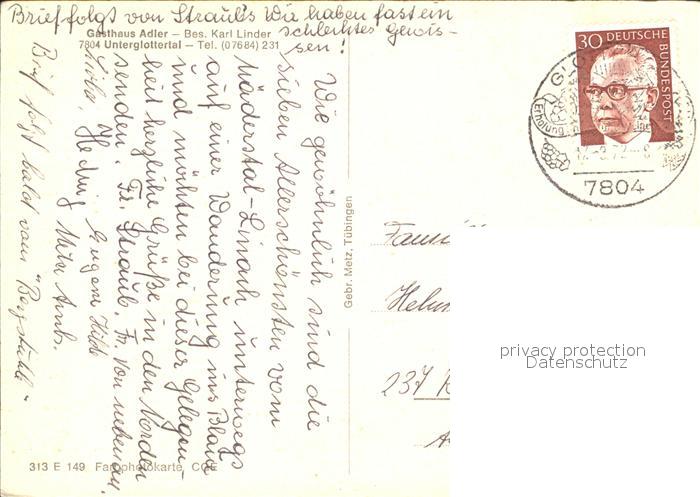 Brief folgt von Straub's Wir haben fast ein
schlechtes Gewis-
sen!
Gasthaus Adler – Bes. Karl Linder
7804 Unterglottertal – Tel. (07684) 231
Wie gewöhnlich sind die
sieben Allerschönsten vom
Häderstal-Linach unterwegs
auf einer Wanderung ins Blaue
und möchten bei dieser Gelegen-
heit herzliche Grüße in den Norden
senden. Fr. Straub. Fr. von nebenan.
Hedwig Eugenie Hilde
Brief folgt bald vom "Bergstüble"
Gebr. Metz, Tübingen
313 E 149 Farbphotokarte, CQE
30 DEUTSCHE
BUNDESPOST
Erholung
7804
Helm
237
privacy protection
Datenschutz